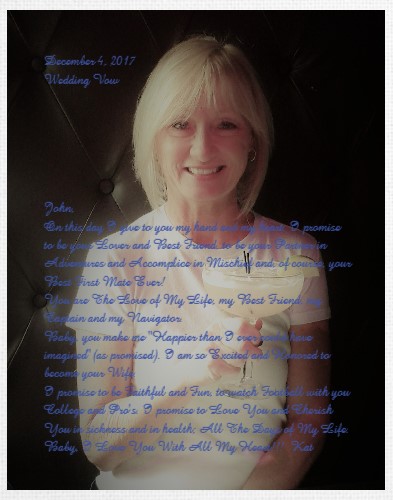 December 4, 2017
Wedding Vow
John,
On this day I give to you my hand and my heart. I promise
to be your Lover and Best Friend, to be your Partner in
Adventures and Accomplice in Mischief and, of course, your
Best First Mate Ever!
You are The Love of My Life, my Best Friend, my
Captain and my Navigator.
Baby, you make me "Happier than I ever could have
imagined" (as promised). I am so Excited and Honored to
become your Wife.
I promise to be Faithful and Fun, to watch Football with you
College and Pro's. I promise to Love You and Cherish
You in sickness and in health; All The Days of My Life.
Baby, I Love You With All My Heart!!! Kat